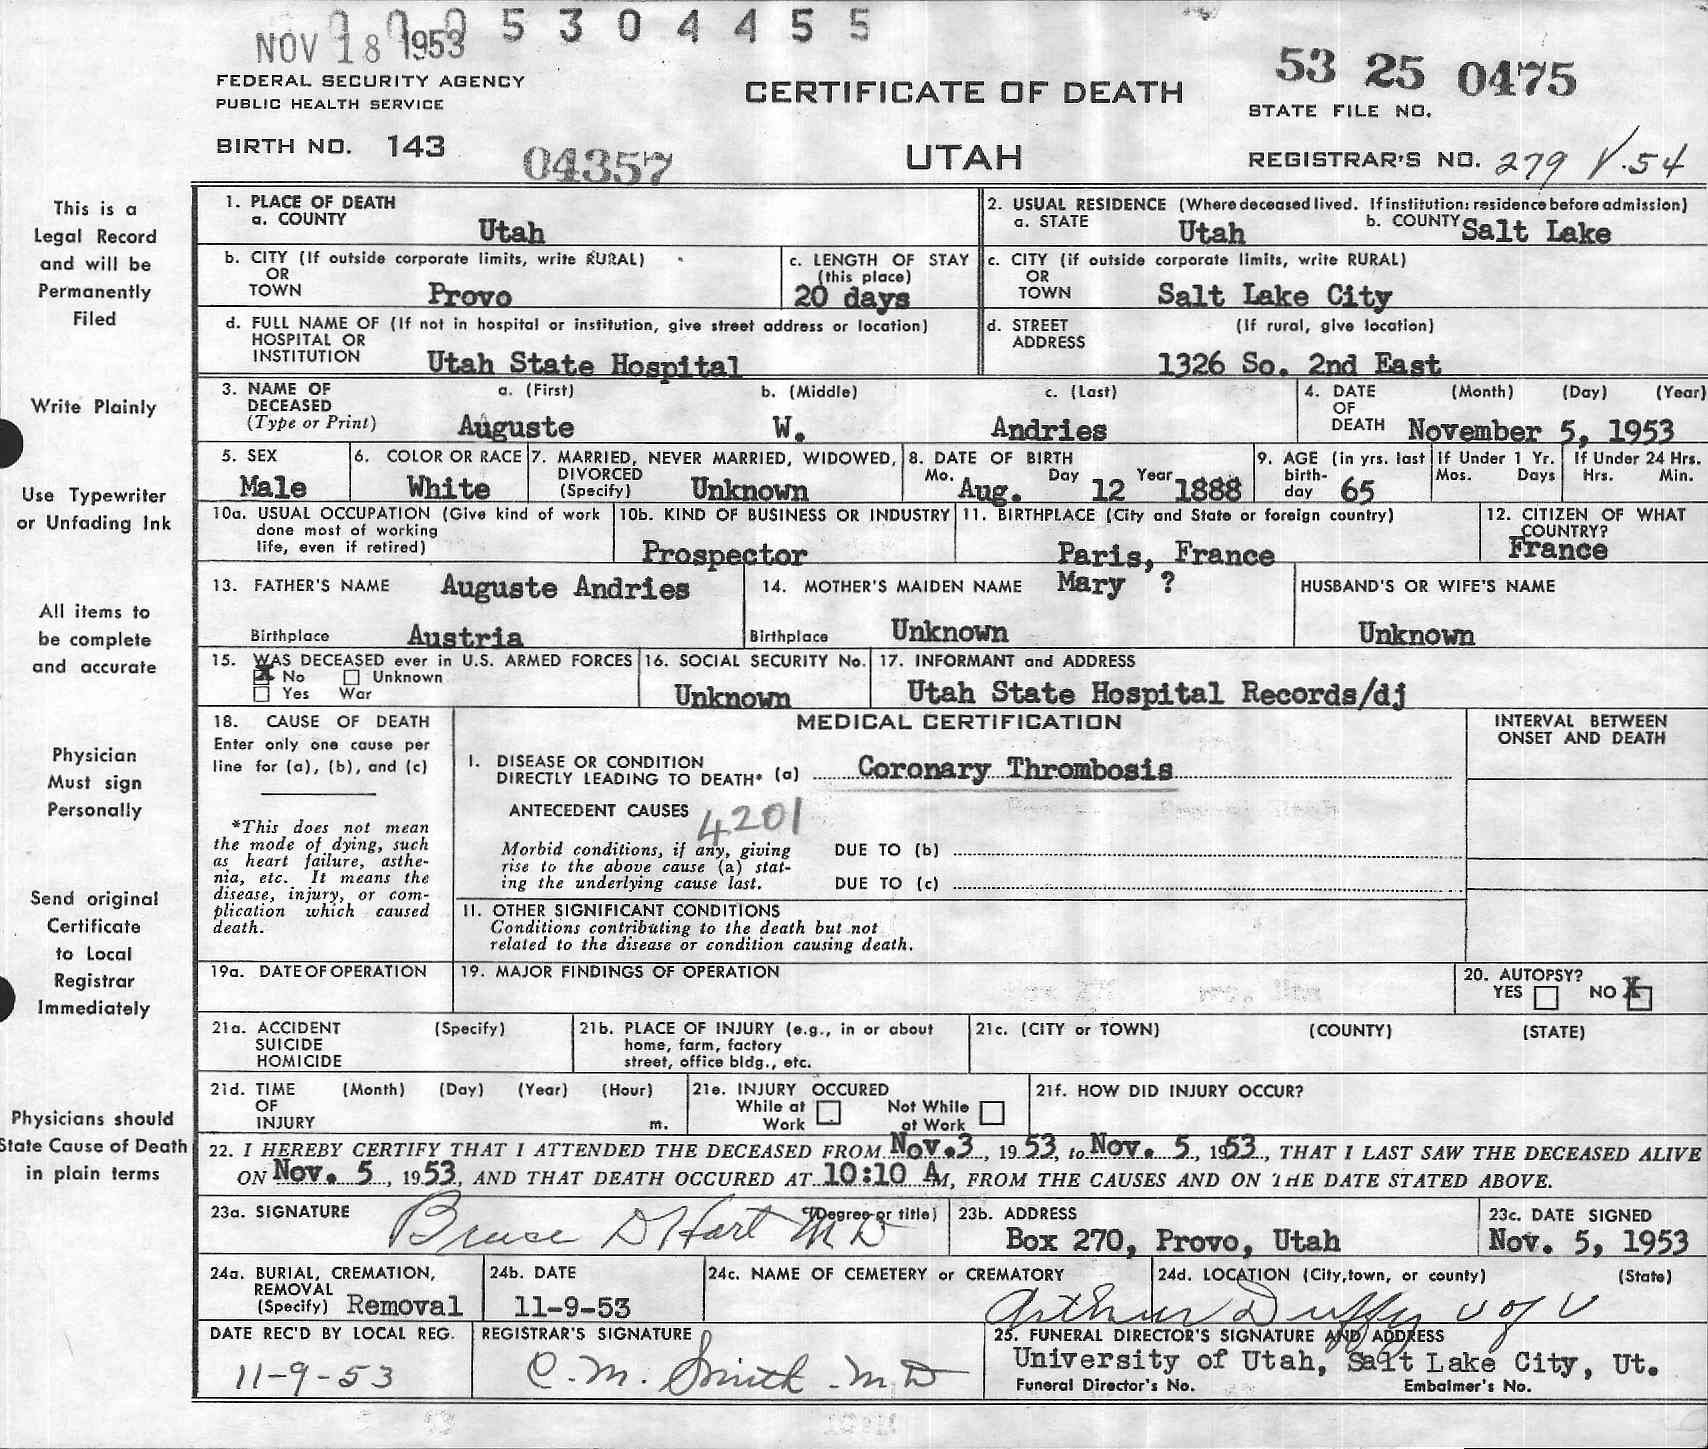 NOV 18 1953 5 3 0 4 4 5 5
FEDERAL SECURITY AGENCY
PUBLIC HEALTH SERVICE
BIRTH NO. 143
04357
CERTIFICATE OF DEATH
UTAH
53 25 0475
STATE FILE NO.
REGISTRAR'S NO. 279
This is a
Legal Record
and will be
Permanently
Filed
Write Plainly
Use Typewriter
or Unfading Ink
All items to
be complete
and accurate
Physician
Must sign
Personally
Send original
Certificate
to Local
Registrar
Immediately
Physicians should
State Cause of Death
in plain terms
1. PLACE OF DEATH
a. COUNTY Utah
2. USUAL RESIDENCE (Where deceased lived. If institution: residence before admission)
a. STATE Utah b. COUNTY Salt Lake
b. CITY (If outside corporate limits, write RURAL)
OR
TOWN Provo
c. LENGTH OF STAY
(this place)
20 days
c. CITY (if outside corporate limits, write RURAL)
OR
TOWN Salt Lake City
d. FULL NAME OF (If not in hospital or institution, give street address or location)
HOSPITAL OR
INSTITUTION Utah State Hospital
d. STREET (If rural, give location)
ADDRESS
1326 So. 2nd East
3. NAME OF a. (First) b. (Middle) c. (Last)
DECEASED
(Type or Print) Auguste W. Andries
4. DATE (Month) (Day) (Year)
OF
DEATH November 5, 1953
5. SEX
Male
6. COLOR OR RACE
White
7. MARRIED, NEVER MARRIED, WIDOWED,
DIVORCED
(Specify) Unknown
8. DATE OF BIRTH
Mo. Aug. Day 12 Year 1888
9. AGE (in yrs. last
birth-
day 65
If Under 1 Yr.
Mos. Days
If Under 24 Hrs.
Hrs. Min.
10a. USUAL OCCUPATION (Give kind of work
done most of working
life, even if retired)
10b. KIND OF BUSINESS OR INDUSTRY
Prospector
11. BIRTHPLACE (City and State or foreign country)
Paris, France
12. CITIZEN OF WHAT
COUNTRY?
France
13. FATHER'S NAME Auguste Andries
Birthplace Austria
14. MOTHER'S MAIDEN NAME Mary ?
Birthplace Unknown
HUSBAND'S OR WIFE'S NAME
Unknown
15. WAS DECEASED ever in U.S. ARMED FORCES
X No Unknown
Yes War
16. SOCIAL SECURITY No.
Unknown
17. INFORMANT and ADDRESS
Utah State Hospital Records/dj
18. CAUSE OF DEATH
Enter only one cause per
line for (a), (b), and (c)
*This does not mean
the mode of dying, such
as heart failure, asthe-
nia, etc. It means the
disease, injury, or com-
plication which caused
death.
MEDICAL CERTIFICATION
I. DISEASE OR CONDITION
DIRECTLY LEADING TO DEATH* (a) Coronary Thrombosis
ANTECEDENT CAUSES 4201
Morbid conditions, if any, giving
rise to the above cause (a) stat-
ing the underlying cause last.
DUE TO (b)
DUE TO (c)
II. OTHER SIGNIFICANT CONDITIONS
Conditions contributing to the death but not
related to the disease or condition causing death.
INTERVAL BETWEEN
ONSET AND DEATH
19a. DATE OF OPERATION
19. MAJOR FINDINGS OF OPERATION
20. AUTOPSY?
YES NO X
21a. ACCIDENT (Specify)
SUICIDE
HOMICIDE
21b. PLACE OF INJURY (e.g., in or about
home, farm, factory
street, office bldg., etc.
21c. (CITY or TOWN) (COUNTY) (STATE)
21d. TIME (Month) (Day) (Year) (Hour)
OF
INJURY m.
21e. INJURY OCCURED
While at Work Not While at Work
21f. HOW DID INJURY OCCUR?
22. I HEREBY CERTIFY THAT I ATTENDED THE DECEASED FROM Nov. 3, 1953, to Nov. 5, 1953, THAT I LAST SAW THE DECEASED ALIVE
ON Nov. 5, 1953, AND THAT DEATH OCCURED AT 10:10 AM, FROM THE CAUSES AND ON THE DATE STATED ABOVE.
23a. SIGNATURE (Degree or title)
Bruce D Hart MD
23b. ADDRESS
Box 270, Provo, Utah
23c. DATE SIGNED
Nov. 5, 1953
24a. BURIAL, CREMATION,
REMOVAL
(Specify) Removal
24b. DATE
11-9-53
24c. NAME OF CEMETERY or CREMATORY
24d. LOCATION (City, town, or county) (State)
Arthur Duffy U of U
DATE REC'D BY LOCAL REG.
11-9-53
REGISTRAR'S SIGNATURE
C. M. Smith. MD
25. FUNERAL DIRECTOR'S SIGNATURE AND ADDRESS
University of Utah, Salt Lake City, Ut.
Funeral Director's No. Embalmer's No.